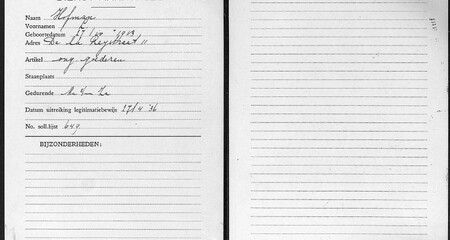 Naam Hofman
Voornamen
Geboortedatum 17/ 1903
Adres De la Reystraat 11
Artikel ong. goederen
Staanplaats
Gedurende Ma t/m Za
Datum uitreiking legitimatiebewijs 17/4 '36
No. soll.lijst 649
BIJZONDERHEDEN: